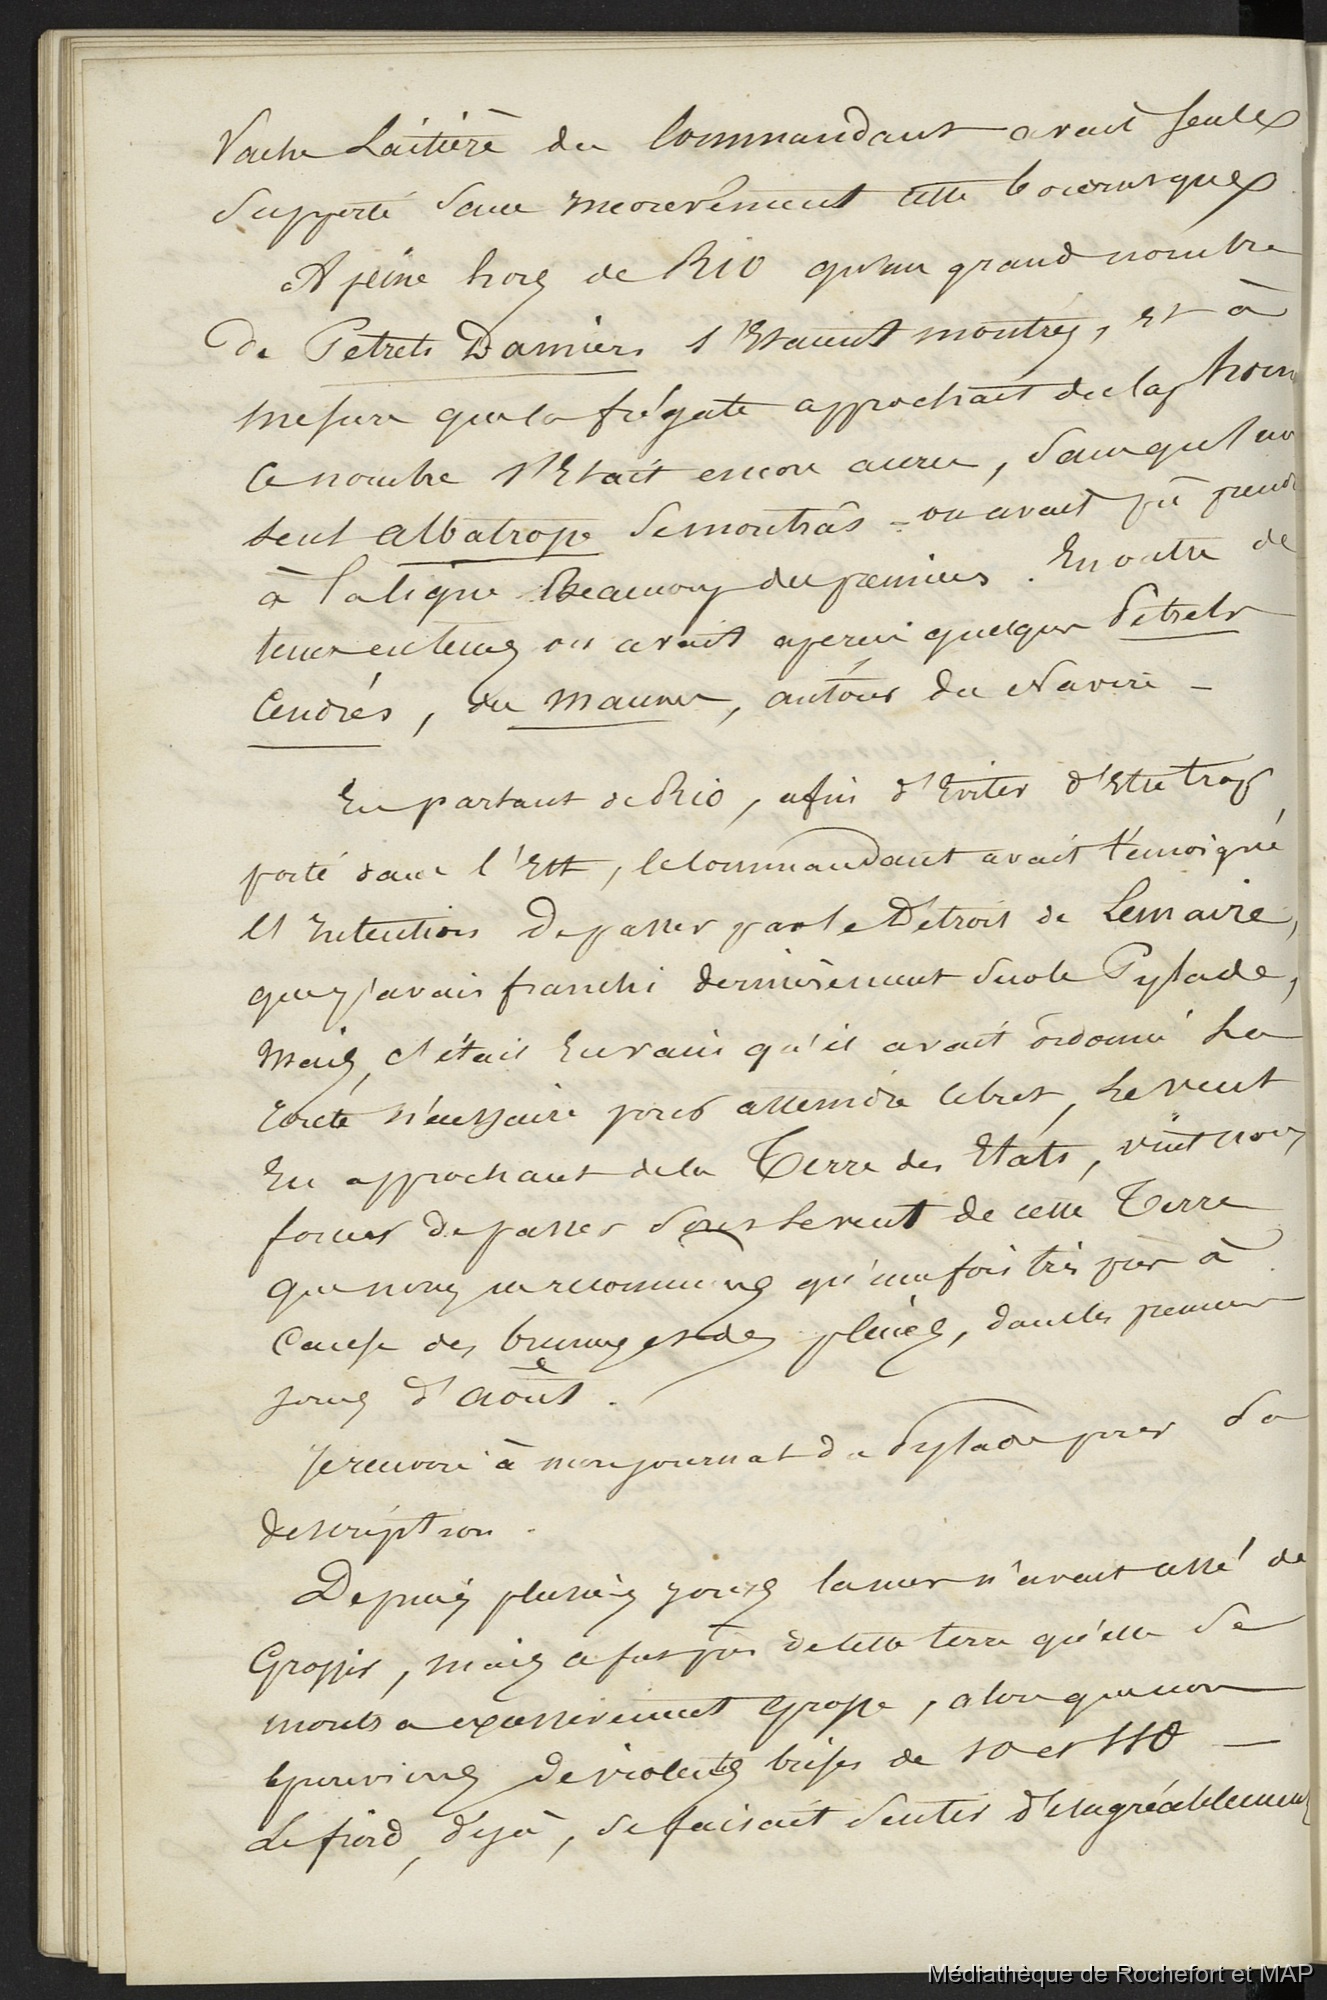 Vache Laitière du Commandant avait seule
supporté sans mouvement cette bourrasque
A peine hors de Rio qu'un grand nombre
de Petrels Damiers s'étaient montrés, et à
mesure que la frégate approchait du Cap Horn
ce nombre s'était encore accru, sans qu'un
seul albatrosse se montrâs - on avait pû prendre
à la ligne Beaucoup des premiers. En outre de
tems en tems on avait aperçu quelques Petrels
Cendrés, du mauves, autour du Navire -
En partant de Rio, afin d'Eviter d'Etre trop
porté dans l'Est, le Commandant avait témoigné
l'Intention De passer par le Détroit de Lemaire,
que j'avais franchi dernièrement sur le Pylade,
Mais, c'était En vain qu'il avait ordonné La
route nécessaire pour atteindre ce but, Le vent
En approchant de la Terre des Etats, vint nous
forcer De passer sous le vent de cette Terre
que nous ne reconnumes qu'une fois très peu à
Cause des brumes et des pluies, dans les premiers
jours d'août.
Je renvoie à mon journal du Pylade pour sa
description.
Depuis plusieurs jours la mer n'avait cessé de
Grossir, mais ce fut près de cette terre qu'elle se
montra excessivement grosse, alors que nous
éprouvions de violentes brises de SO et SSO —
Le froid, déjà, se faisait sentir désagréablement
Médiathèque de Rochefort et MAP